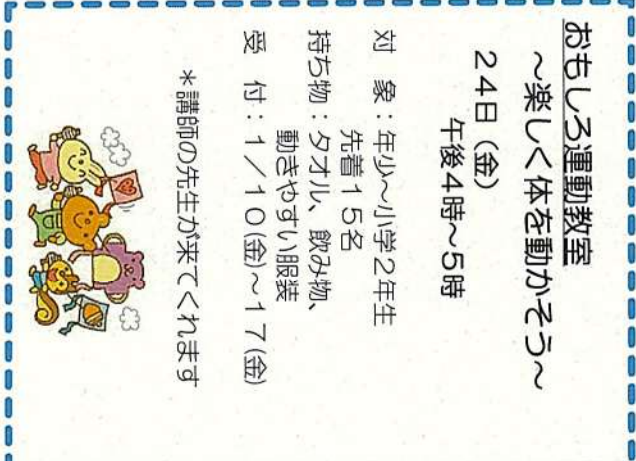 おもしろ運動教室
～楽しく体を動かそう～
24日（金）
午後4時～5時
対　象：年少～小学2年生
先着15名
持ち物：タオル、飲み物、
動きやすい服装
受　付：1／10(金)～17(金)
＊講師の先生が来てくれます